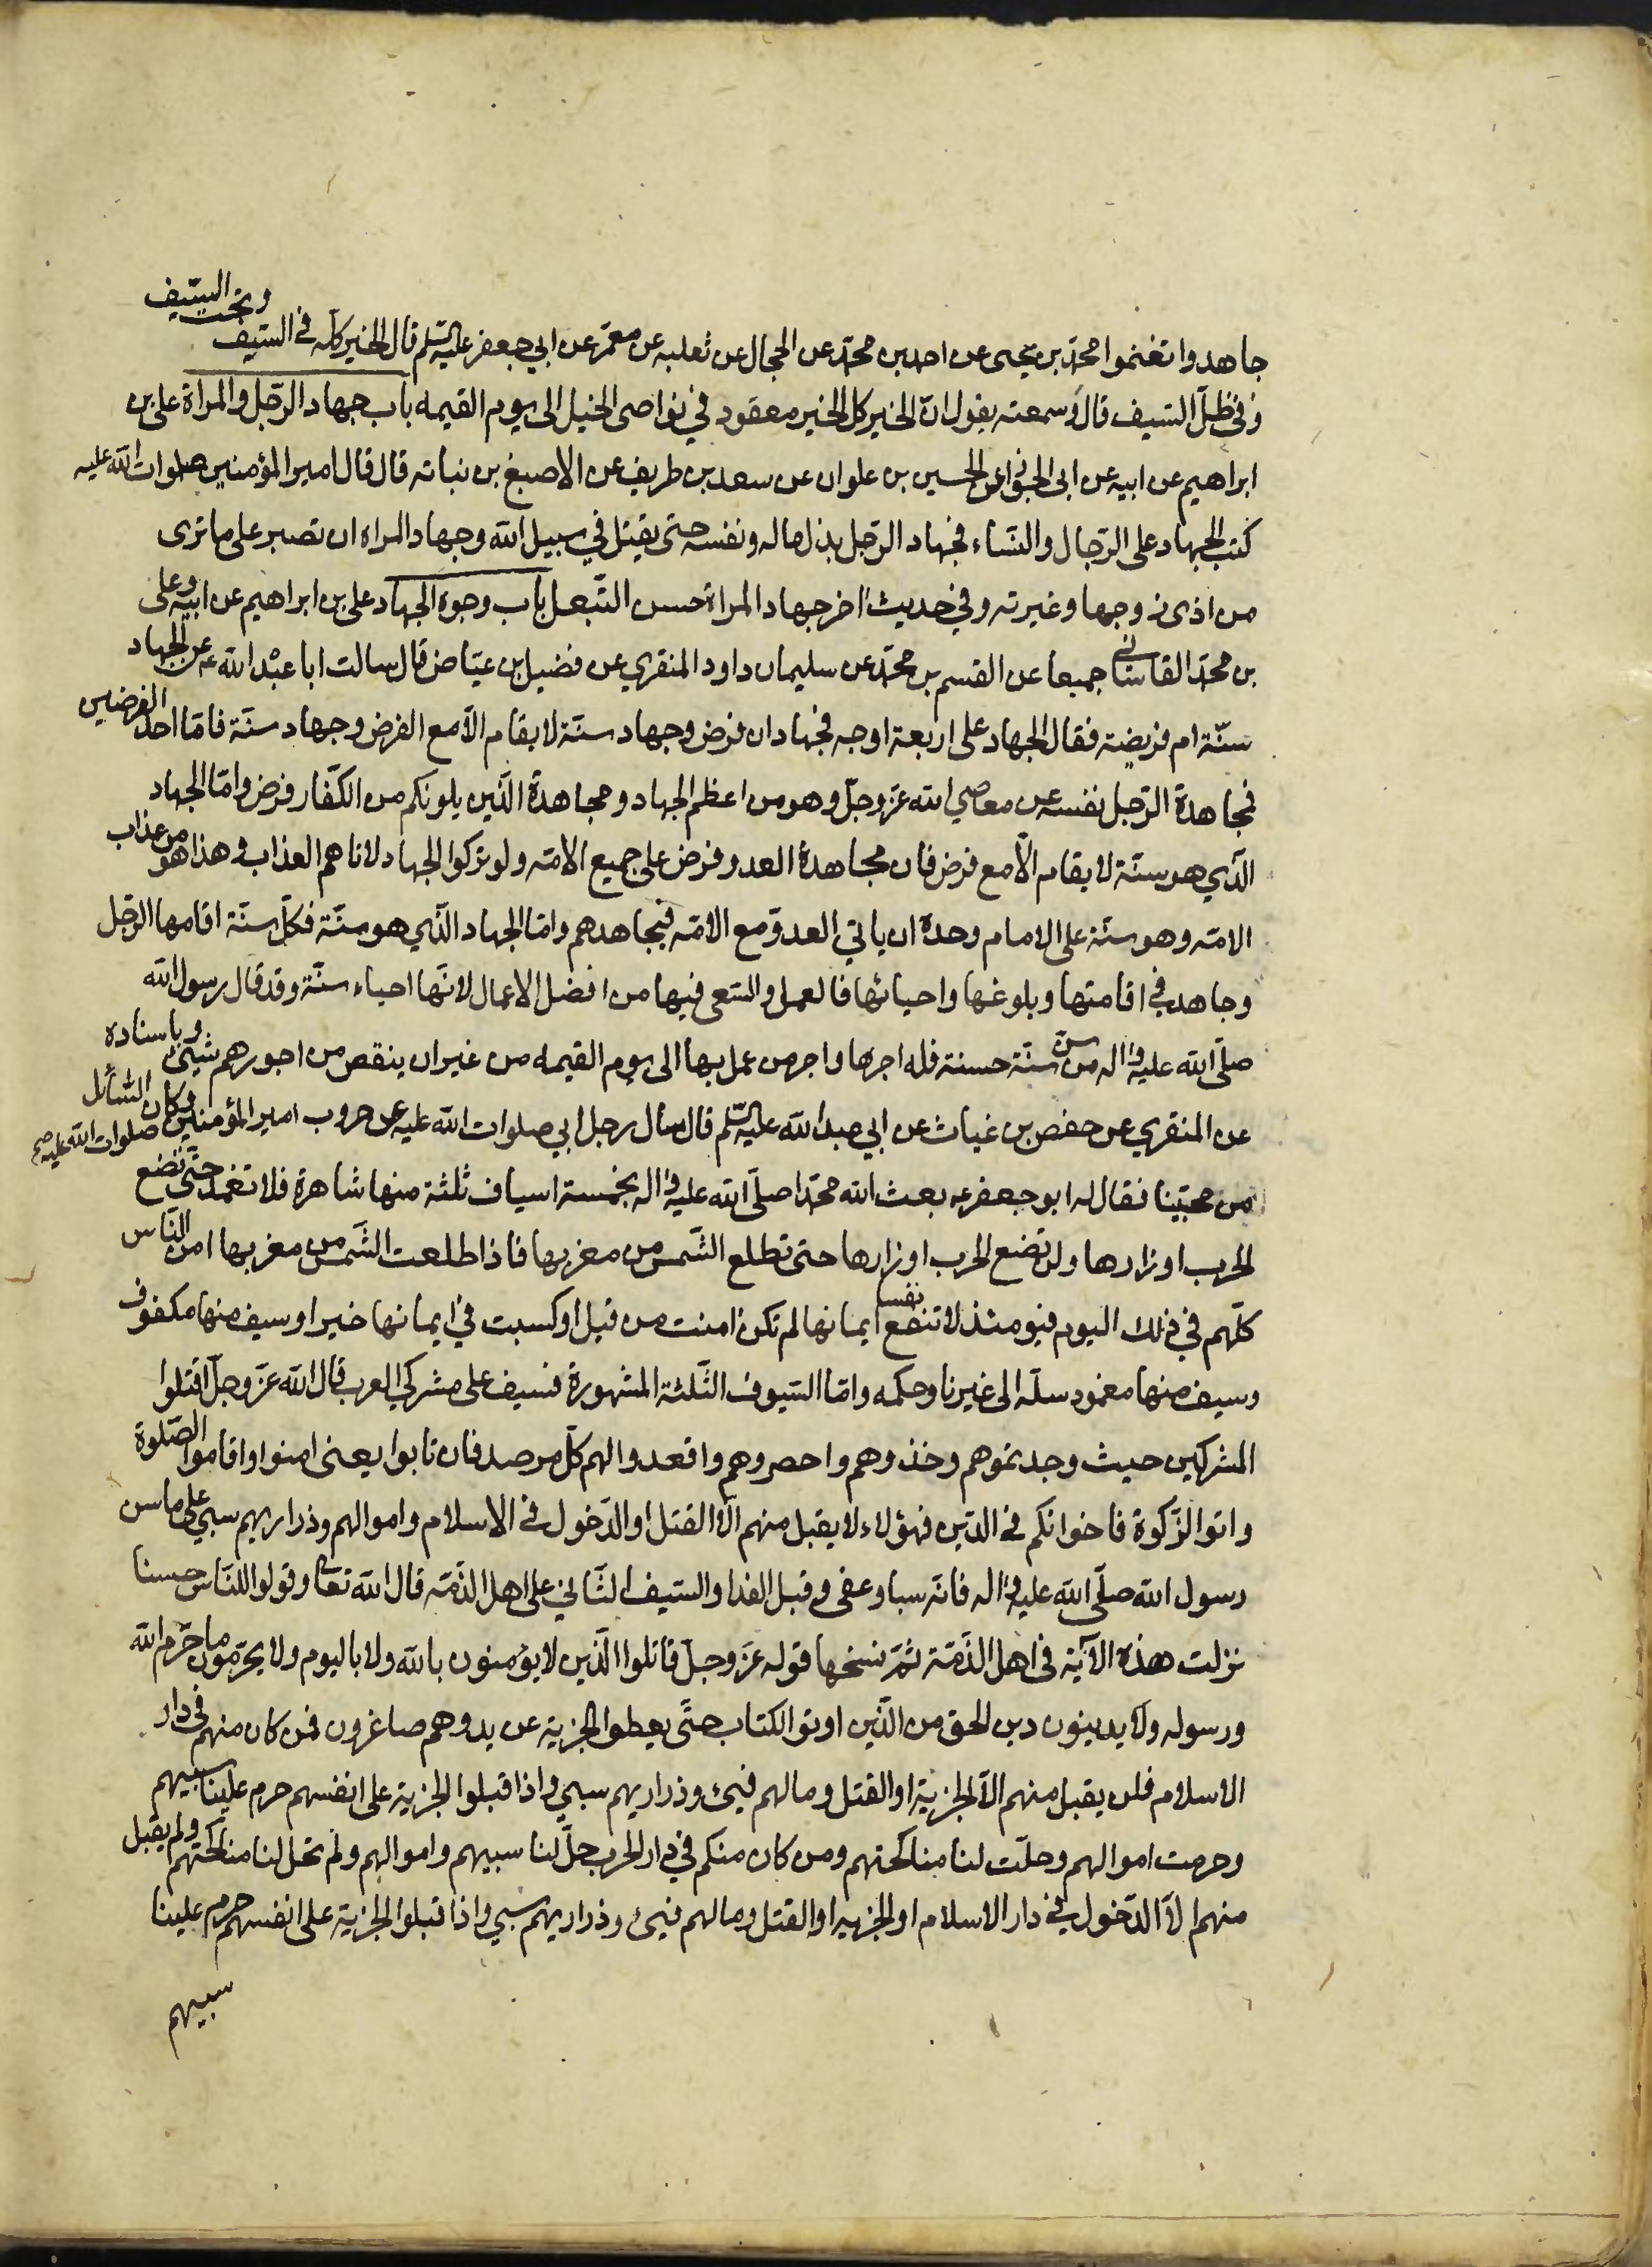 جاهدوا تغنموا محمّد بن يحيى عن احمد بن محمّد عن الحجال عن ثعلبه عن معمّر عن ابي جعفر عليه السّلم قال الخير كله في السّيف وتحت السّيف
وفي ظلّ السّيف قال وسمعته يقول انّ الخير كل الخير معقود في نواصي الخيل الى يوم القيمه باب جهاد الرّجل والمراة علي بن
ابراهيم عن ابيه عن ابى الجوزا عن الحسين بن علوان عن سعد بن طريف عن الاصبغ بن نباته قال قال امير المؤمنين صلوات الله عليه
كتب الجهاد على الرّجال والنّساء فجهاد الرّجل بذل ماله ونفسه حتى يقتل في سبيل الله وجهاد المراه ان تصبر على ما ترى
من اذى زوجها وغيرته وفي حديث اخر جهاد المراة حسن التّبعل باب وجوه الجهاد علي بن ابراهيم عن ابيه وعلى
بن محمّد القاساني جميعا عن القسم بن محمّد عن سليمان داود المنقري عن فضيل بن عيّاض قال سالت ابا عبد الله ع عن الجهاد
سنّة ام فريضة فقال الجهاد على اربعة اوجه فجهادان فرض وجهاد سنّة لا يقام الّا مع الفرض وجهاد سنّة فامّا احد الفرضين
فمجاهدة الرّجل نفسه عن معاصي الله عزّ وجلّ وهو من اعظم الجهاد ومجاهدة الّذين يلونكم من الكفّار فرض وامّا الجهاد
الّذي هو سنّة لا يقام الّا مع فرض فان مجاهدة العدو فرض على جميع الامّه ولو تركوا الجهاد لاتاهم العذاب وهذا هو من عذاب
الامّه وهو سنّة على الامام وحده ان ياتي العدوّ مع الامّه فيجاهدهم وامّا الجهاد الّذي هو سنّة فكلّ سنّة اقامها الرّجل
وجاهد في اقامتها وبلوغها واحيائها فالعمل والسّعى فيها من افضل الاعمال لانّها احياء سنّة وقد قال رسول الله
صلّى الله عليه واله من سنّ سنّة حسنة فله اجرها واجر من عمل بها الى يوم القيمه من غير ان ينقص من اجورهم شيئ وباسناده
عن المنقري عن حفص بن غياث عن ابي عبد الله عليه السّلم قال سال رجل ابي صلوات الله عليه عن حروب امير المؤمنين صلوات الله عليه صح وكان السّائل
من محبّينا فقال له ابو جعفر ع بعث الله محمّدا صلّى الله عليه واله بخمسة اسياف ثلثة منها شاهرة فلا تغمد حتّى تضع
الحرب اوزارها ولن تضع الحرب اوزارها حتى تطلع الشّمس من مغربها فاذا طلعت الشّمس من مغربها امن النّاس
كلّهم في ذلك اليوم فيومئذ لا تنفع نفسا ايمانها لم تكن امنت من قبل او كسبت في ايمانها خيرا وسيف منها مكفوف
وسيف منها مغمود سلّه الى غيرنا وحكمه وامّا السّيوف الثّلثة المشهورة فسيف على مشركي العرب قال الله عزّ وجلّ اقتلوا
المشركين حيث وجدتموهم وخذوهم واحصروهم واقعدوا لهم كلّ مرصد فان تابوا يعنى امنوا واقاموا الصّلوة
واتوا الزّكوة فاخوانكم في الدّين فهؤلاء لا يقبل منهم الّا القتل او الدّخول في الاسلام واموالهم وذراريهم سبي على ما سن
رسول الله صلّى الله عليه واله فانّه سبا وعفى وقبل الفدا والسّيف الثّاني على اهل الذّمّه قال الله تعا وقولوا للنّاس حسنا
نزلت هذه الآية في اهل الذّمّة ثمّ نسخها قوله عزّ وجلّ قاتلوا الّذين لا يؤمنون بالله ولا باليوم ولا يحرّمون ما حرّم الله
ورسوله ولا يدينون دين الحق من الّذين اوتوا الكتاب حتّى يعطوا الجزية عن يد وهم صاغرون فمن كان منهم في دار
الاسلام فلن يقبل منهم الّا الجزية او القتل ومالهم فيئ وذراريهم سبي واذا قبلوا الجزية على انفسهم حرم علينا سبيهم
وحرمت اموالهم وحلّت لنا مناكحتهم ومن كان منكم في دار الحرب حلّ لنا سبيهم واموالهم ولم تحل لنا مناكحتهم ولم يقبل
منهم الّا الدّخول في دار الاسلام او الجزيه او القتل ومالهم فيئ وذراريهم سبي واذا قبلوا الجزية على انفسهم حرم علينا
سبيهم